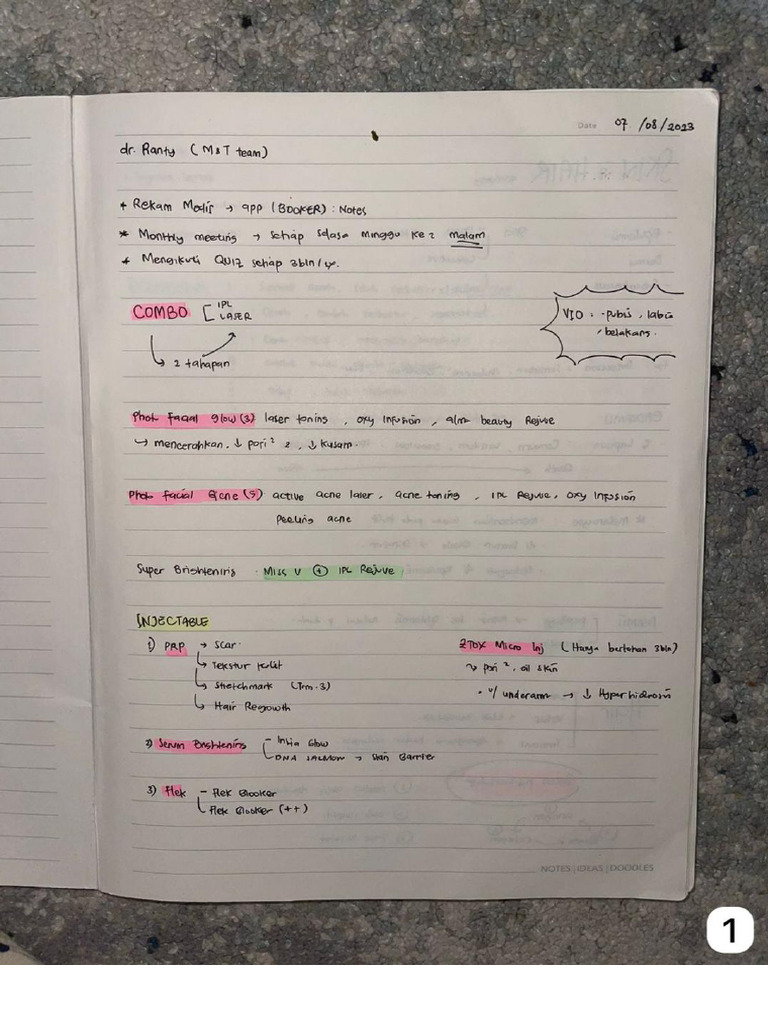 Date 07 /08/2023
dr. Ranty ( M&T team)
* Rekam Medis → app (BOOKER) : Notes
* Monthly meeting → setiap selasa minggu ke 2 malam
* Mengikuti QUIZ setiap 3bln/
COMBO [ IPL
LASER
↳ 2 tahapan
VIO : - pubis, labia
, belakang.
Photo Facial Glow (3) laser toning , oxy infusion , beauty Rejuve
↳ mencerahkan. ↓ pori² 2, ↓ kusam.
Photo Facial Acne (5) active acne laser, acne toning , IPL Rejuve, oxy infusion
Peeling acne
Super Brightening . Miss V + IPL Rejuve
INJECTABLE
1) PRP → Scar
↳ Tekstur kulit
↳ Stretchmark (Trm. 3)
↳ Hair Regrowth
ZTOX Micro Inj ( Hanya bertahan 3bln)
~ pori ², oil skin
• u/ underarm → ↓ Hyperhidrosis
2) Serum Brightening - Glow
DNA SALMON → Skin Barrier
3) Flek - Flek Blocker
Flek Blocker (++)
NOTES | IDEAS | DOODLES
1